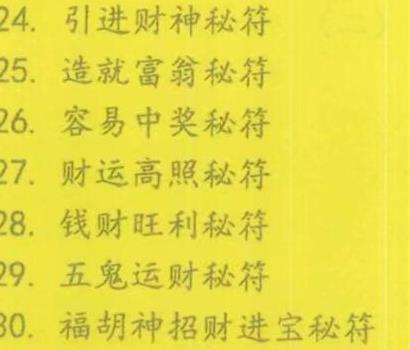 24. 引进财神秘符
25. 造就富翁秘符
26. 容易中奖秘符
27. 财运高照秘符
28. 钱财旺利秘符
29. 五鬼运财秘符
30. 福胡神招财进宝秘符